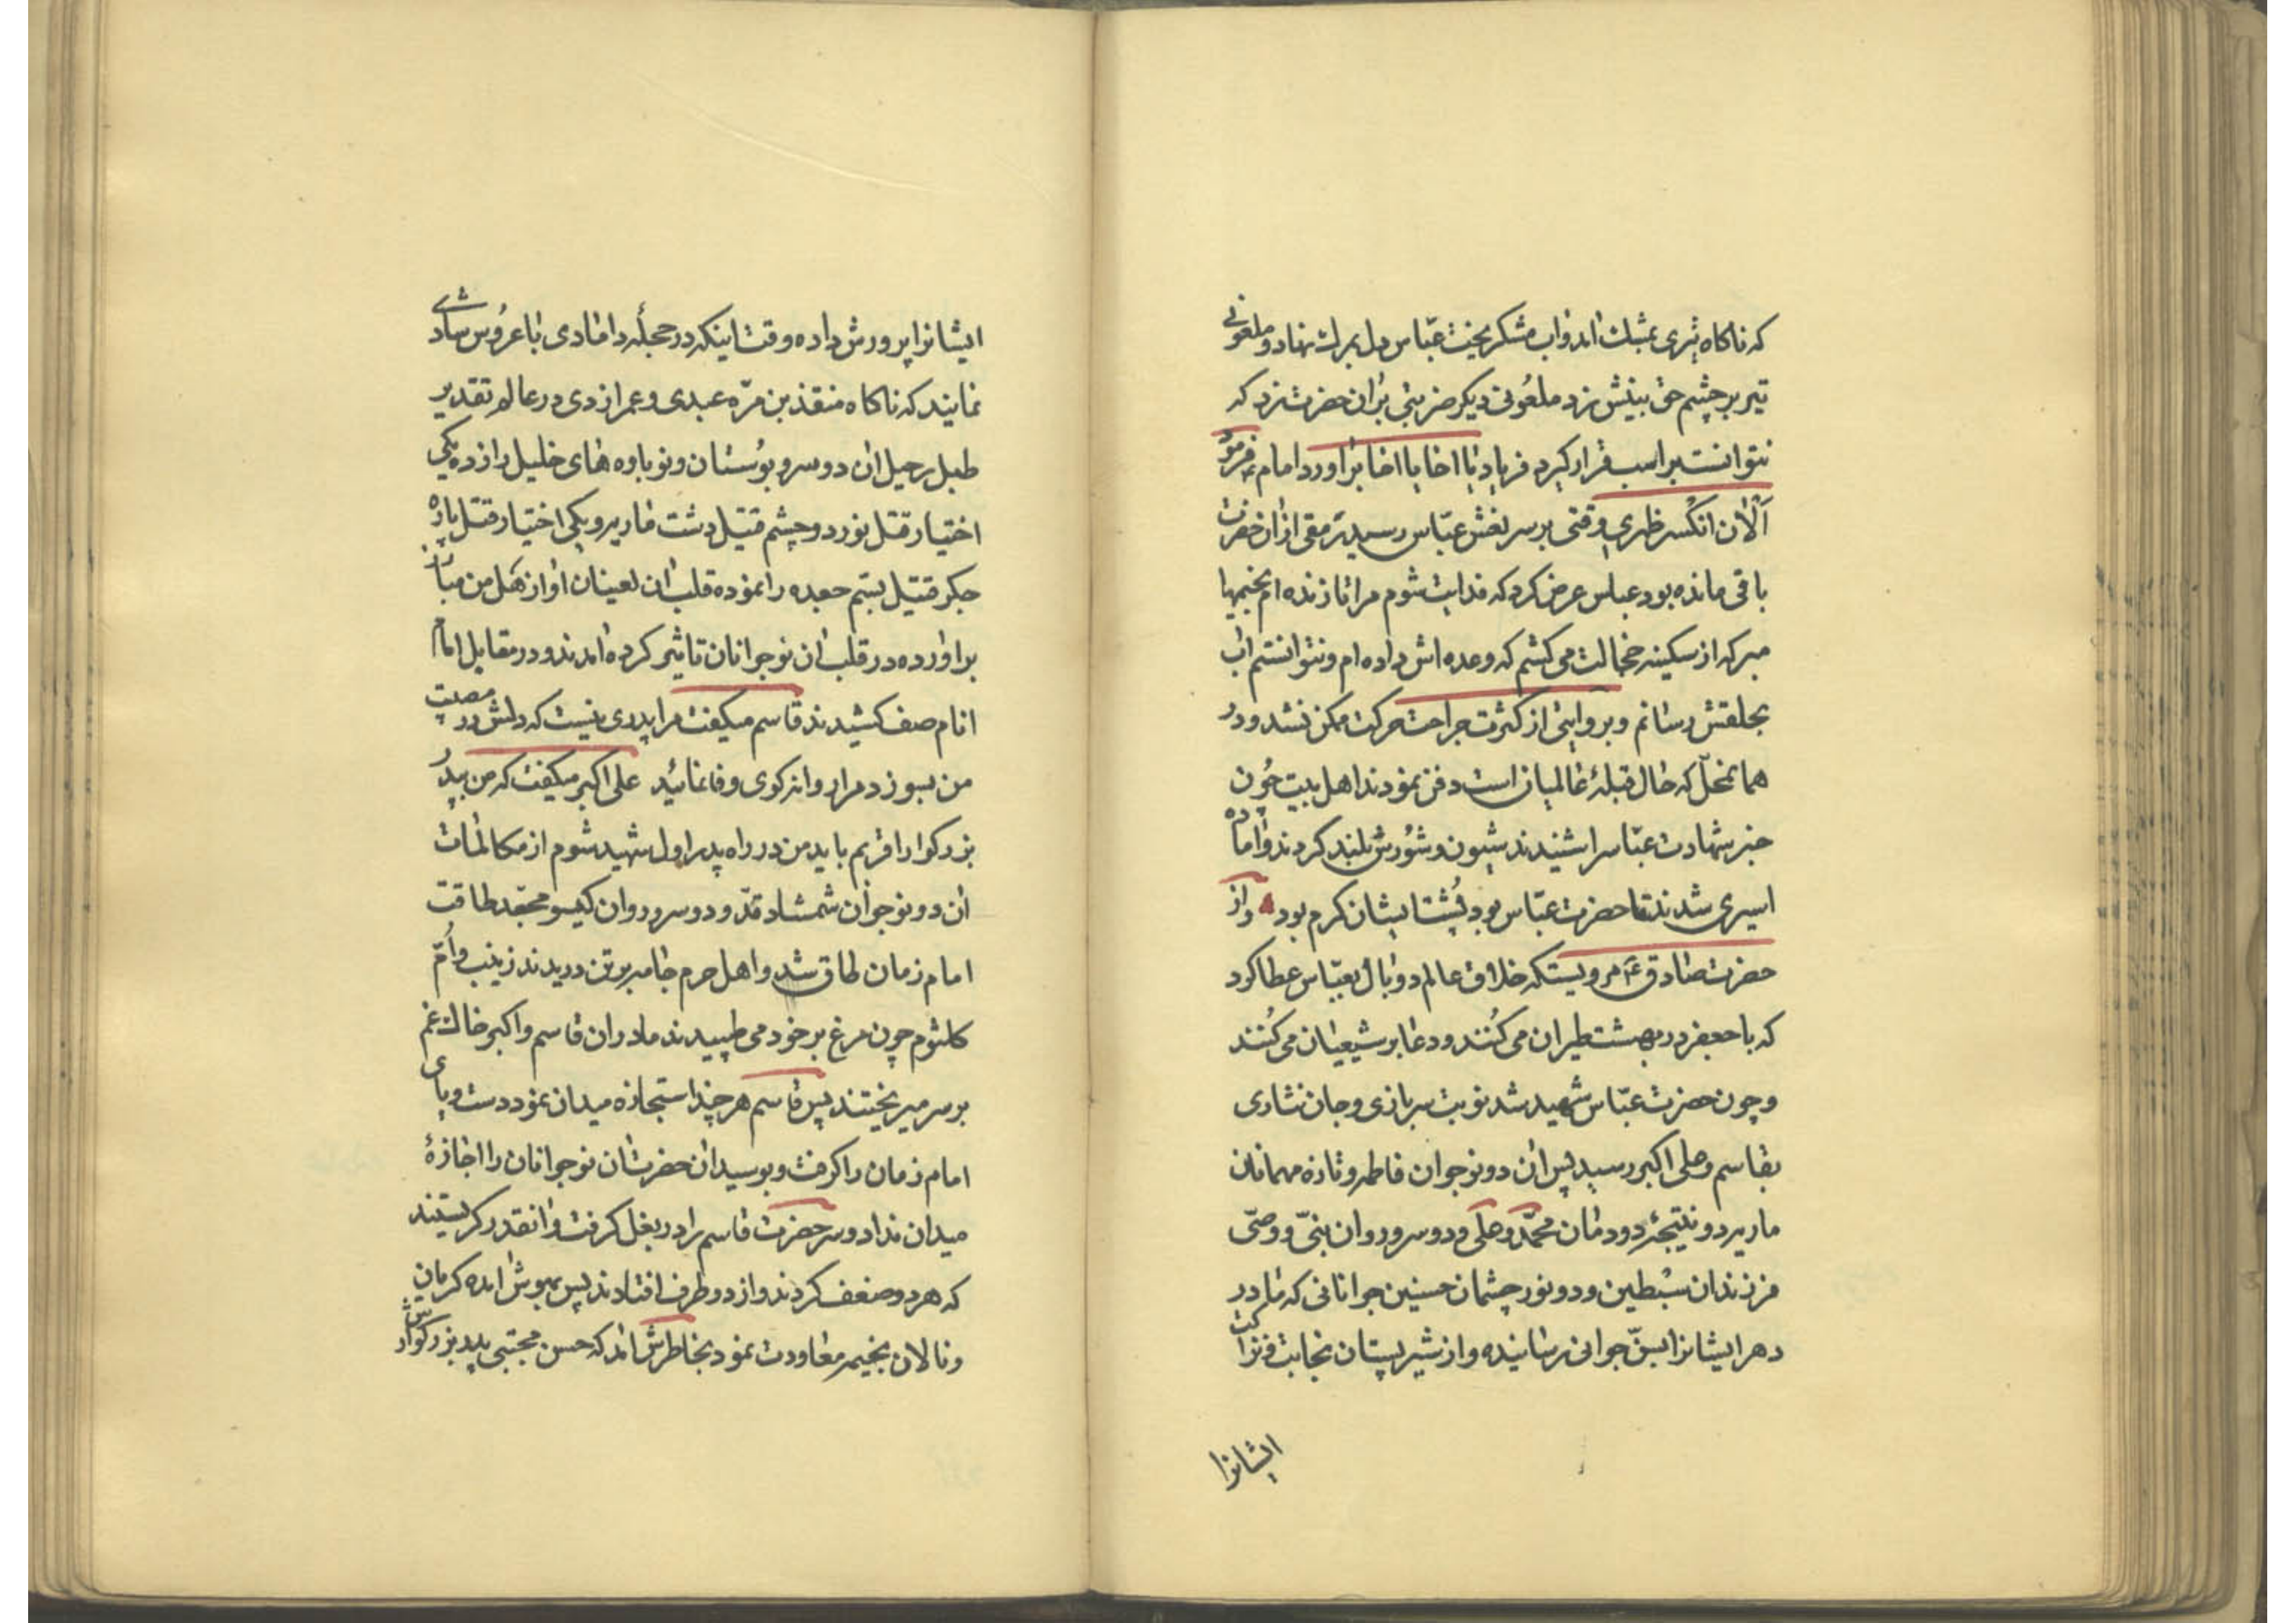 که ناکاه تیری بمشک امد واب مشک ریخت عبّاس دل بمرك نهاد و ملعونی
تیر بر چشم حق بینش زد ملعُونی دیکر ضربتی بران حضرت زد که
نتوانست بر اسب قرار کیرد فریاد یا اخا یا اخا براورد امام ع فرمود
اَلْان انکْسر ظهری وقتی بر سر نعش عبّاس رسید رمقی ازان حضرت
باقی مانده بود عباس عرض کرد که فدایت شوم مرا تا زنده ام بخیمها
مبر که از سکینه خجالت می کشم که وعده اش داده ام ونتوانستم اب
بحلقش رسانم وبروایتی از کثرت جراحت حرکت ممکن نشد ودر
همانمحلّ که حال قبلهٔ عالمیان است دفن نمودند اهل بیت چُون
خبر شهادت عبّاس را شنیدند شیون وشُورش بلند کردند واماده
اسیری شدند تا حضرت عبّاس بود پُشت ایشان کرم بود واز
حضرت صادق ع مرویستکه خلاق عالم دو بال بعبّاس عطا کرد
که با جعفر در بهشت طیران می کُنند ودعا بر شیعیان می کُنند
وچون حضرت عبّاس شهید شد نوبت سربازی وجان نثاری
بقاسم وعلی اکبر رسید پس ان دو نوجوان فاطمه وتازه مهمانان
ماریه دو نتیجهٔ دودمان محمّد وعلی ودو سرو روان نبیّ ووصیّ
فرزندان سبْطین ودو نور چشمان حسنین جوانانی که مادر
دهر ایشانرا بسنّ جوانی رسانیده واز شیر پستان نجابت وفراکت
ایشانرا
ایشانرا پرورش داده وقت اینکه در حجلهٔ دامادی با عروُس شادی
نمایند که ناکاه منقذ بن مرّه عبدی وعمر ازدی در عالم تقدیر
طبل رحیل ان دو سرو بوُستان ونوباوه های خلیل را زده یکی
اختیار قتل نور دو چشم قتیل دشت ماریه ویکی اختیار قتل پاره
جکر قتیل بسم جعده را نموده قلب ان لعینان اواز هَل من مبارز
براورده در قلب ان نوجوانان تاثیر کرده امدند ودر مقابل امام
انام صف کشیدند قاسم میکفت مرا پدری نیست که دلش در مصیبت
من بسوزد مرا روانه کوی وفا نمائید علی اکبر میکفت که من بپدر
بزرکوار اقربم باید من در راه پدر اول شهید شوم از مکالمات
ان دو نوجوان شمشاد قدّ ودو سرو روان کیسو مجعّد طاقت
امام زمان طاق شد واهل حرم جامه برتن دریدند زینب واُمّ
کلثوم چون مرغ بر خود می طپیدند مادران قاسم واکبر خاك غم
بر سر میریختند پس قاسم هر چند استجازه میدان نمود دست وپای
امام زمان را کرفت وبوسید ان حضرت ان نوجوانان را اجازهٔ
میدان نداد وسر حضرت قاسم را در بغل کرفت وانقدر کریستند
که هر دو ضعف کردند واز دو طرف افتادند پس بهوش امده کریان
ونالان بخیمه معاودت نمود بخاطرش امد که حسن مجتبی پدر بزرکوارش